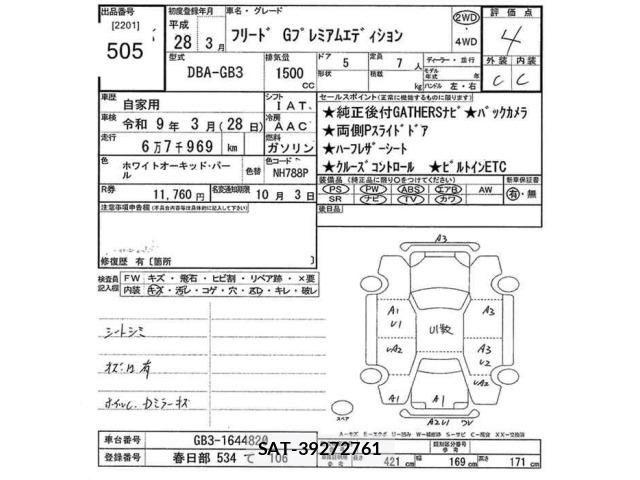 出品番号 [2201] 505
初度登録年月 平成 28年 3月
車名・グレード フリード Gプレミアムエディション
2WD ・ 4WD
評価点 4
外装 C 内装 C
型式 DBA-GB3
排気量 1500 CC
ドア 5 形状
定員 7 人 積載 kg
ディーラー・並行
モデル年式 年
ハンドル 左・右
車歴 自家用
シフト IAT
車検 令和 9年 3月(28日)
冷房 AAC
走行 6万7千969 km
燃料 ガソリン
色 ホワイトオーキッド・パール
色替
色コード NH788P
R券 11,760 円
名変通知期限 10月 3日
セールスポイント(正常に機能するものに限ります)
★純正後付GATHERSナビ★バックカメラ
★両側Pスライドドア
★ハーフレザーシート
★クルーズコントロール ★ビルトインETC
装備品(純正品に限り○をつけてください)
PS PW ABS エアB AW
SR ナビ TV カワ
新車保証書 有・無
後日品
注意事項申告欄
修復歴 有〔箇所 〕
検査員記入欄
FW キズ・飛石・ヒビ割・リペア跡・×要
内装 キズ・汚レ・コゲ・穴・凹・キレ・破レ
シートシミ
ホイルC. Dミラーキズ
A3
A1
U1
UA2
U1数
A3
A3
U2
A1
A1
A2U1
スペア
車台番号 GB3-1644820
登録番号 春日部 534 て 106
SAT-39272761
長さ 421 cm
幅 169 cm
高さ 171 cm